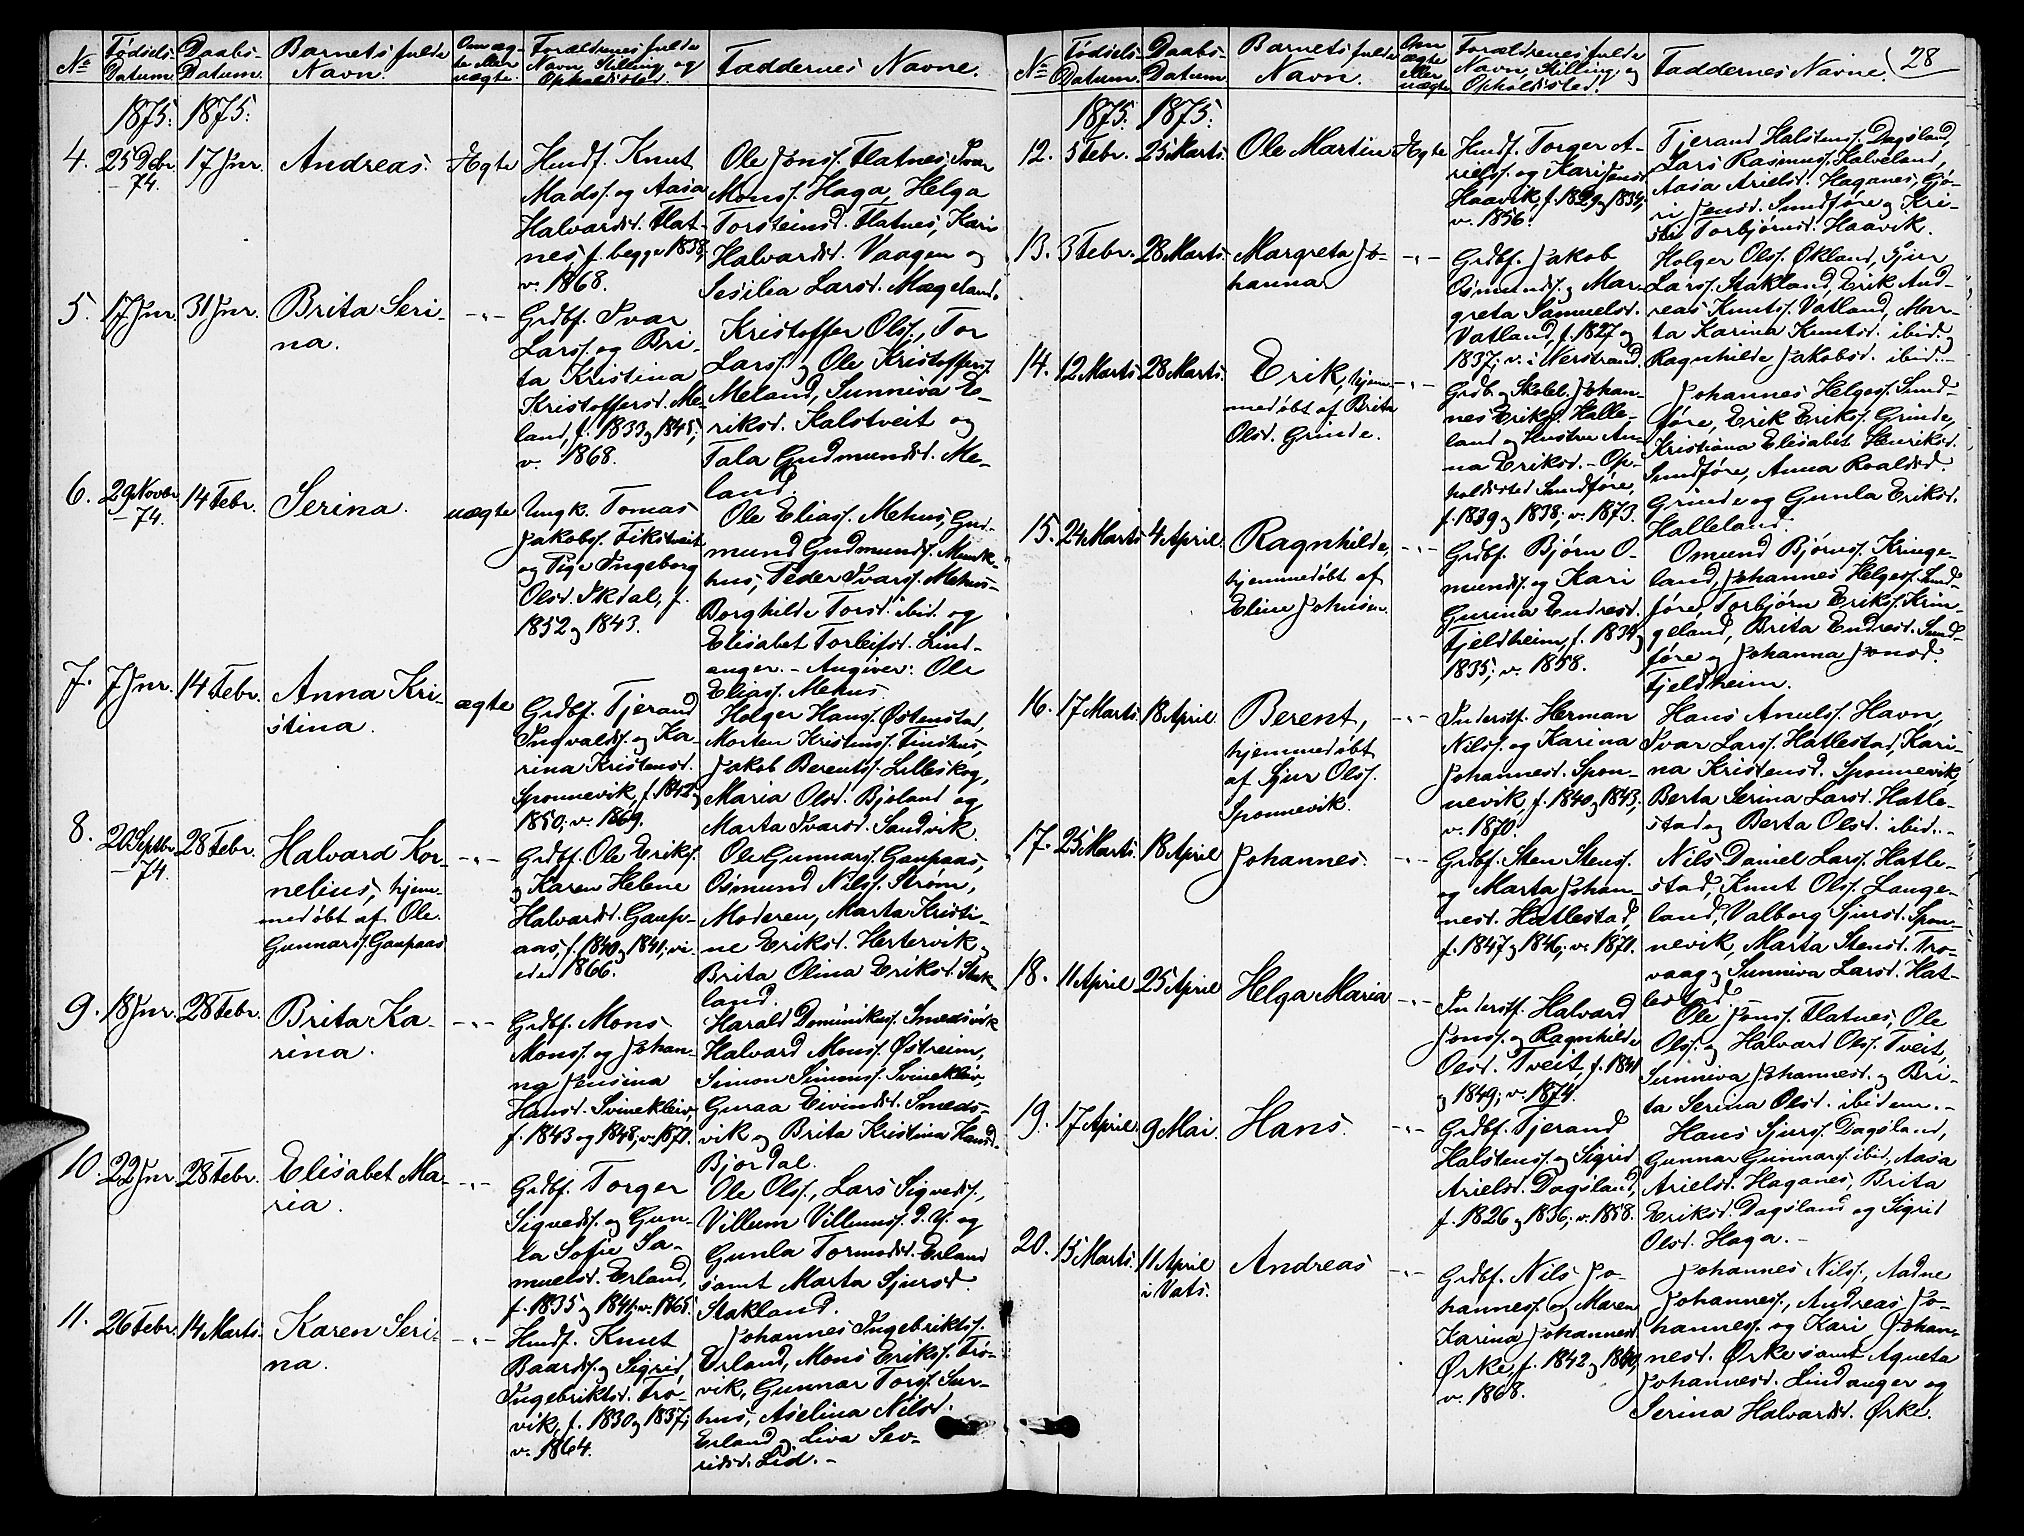 No
Fødsels-
Datum.
Daabs-
Datum.
Barnets fulde
Navn.
Om æg-
te eller
uægte.
Forældrenes fulde
Navn, Stilling og
Opholdssted.
Faddernes Navne.
1875: 1875:
4. 25 Debr. 17 Jnr. Andreas. Ægte
-74.
Husmf. Knut
Madss. og Aasa
Halvardsd. Flat-
nes f. begge 1838,
v. 1868.
Ole Jonss. Flatnes, Ivar
Monss. Haga, Helga
Torsteinsd. Flatnes, Kari
Halvardsd. Vaagen og
Sesilia Larsd. Mæeland.
5. 17 Jnr. 31 Jnr. Brita Seri-
na. -"-
Grdbf. Ivar
Larss. og Bri-
ta Kristina
Kristoffersd. Me-
land, f. 1833 og 1845;
v. 1868.
Kristoffer Olss., Tor
Larss. og Ole Kristofferss.
Meland, Sunniva E-
riksd. Kalstveit og
Tala Gudmundsd. Me-
land.
6. 29 Novbr. 14 Febr. Serina. uægte
-74.
Ungk. Tomas
Jakobss. Fikstveit
og Pige Ingeborg
Olsd. Ikdal, f.
1852 og 1843.
Ole Eliass. Mehus, Gud-
mund Gudmundss. Munk-
hus, Peder Ivarss. Mehus-
Borghilde Torsd. ibid. og
Elisabet Torleifsd. Lind-
anger. - Angiver: Ole
Eliass. Mehus.
7. 7 Jnr. 14 Febr. Anna Kri-
stina. ægte
Grdbf. Tjerand
Ingvaldss. og Ka-
rina Kristensd.
Sponnevik, f. 1842 og
1850; v. 1869.
Holger Hanss. Østenstad,
Morten Kristenss. Finshus,
Jakob Berentss. Lilleskog,
Maria Olsd. Bjoland og
Marta Ivarsd. Sandvik.
8. 20 Septbr. 28 Febr. Halvard Kor-
-74.
nelius, hjem-
medøbt af Ole
Gunnarss. Gaupaas -"-
Grdbf. Ole Erikss.
og Karen Helene
Halvardsd. Gaup-
aas, f. 1840 og 1841; vi-
ede 1866.
Ole Gunnarss. Gaupaas,
Osmund Nilss. Strøm,
Moderen, Marta Kristi-
ne Eriksd. Hertervik og
Brita Olina Eriksd. Stak-
land.
9. 18 Jnr. 28 Febr. Brita Ka-
rina. -"-
Grdbf. Mons
Monss. og Johan-
na Jensina
Hansd. Svinekleiv,
f. 1843 og 1848; v. 1871.
Harald Dominikuss. Smedsvik
Halvard Monss. Østreim,
Simon Simonss. Svinekleiv,
Guraa Eivindsd. Smeds-
vik og Brita Kristina Hansd.
Bjordal.
10. 22 Jnr. 28 Febr. Elisabet Ma-
ria. -"-
Grdbf. Torger
Sigvedss. og Gun-
la Sofie Sa-
muelsd. Erland,
f. 1835 og 1841; v. 1865.
Ole Olss., Lars Sigvedss.,
Villum Villumss. d. Y. og
Gunla Tormodsd. Erland
samt Marta Sjursd.
Stakland.
11. 26 Febr. 14 Marts. Karen Seri-
na. -"-
Husmf. Knut
Baardss. og Sigrid
Ingebriktsd. Trø-
vik, f. 1830 og 1837;
v. 1864.
Johannes Ingebriktss.
Erland, Mons Erikss. Trø-
vik, Gunnar Torss. Sør-
hus, Aselina Nilsd.
Erland og Liva Sev-
ridsd. Lid. -
No
Fødsels-
Datum.
Daabs-
Datum.
Barnets fulde
Navn.
Om
ægte
eller
uægte
Forældrenes fulde
Navn, Stilling og
Opholdssted.
Faddernes Navne.
28
1875: 1875:
12. 5 Febr. 25 Marts. Ole Martin Ægte
Husmf. Torger A-
rielss. og Kari Jensd.
Haavik, f. 1829 og 1834;
v. 1856.
Tjerand Halstenss. Dagsland,
Lars Rasmuss. Halveland,
Aasa Arielsd. Haganes, Gjø-
ri Jensd. Sundføre og Kri-
sti Torbjørnsd. Haavik.
13. 3 Febr. 28 Marts. Margreta Jo-
hanna. -"-
Grdbf. Jakob
Osmundss. og Mar-
greta Samuelsd.
Vatland, f. 1827 og
1837; v. i Nerstrand.
Holger Olss. Økland, Sjur
Larss. Stakland, Erik And-
reas Knutss. Vatland, Mar-
ta Karina Knutsd. ibid. og
Ragnhilde Jakobsd. ibid. -
14. 12 Marts 28 Marts. Erik, hjem-
medøbt af Brita
Olsd. Grinde. -"-
Grdb. og Skolel. Johan-
nes Erikss. Halle-
land og Hustru An-
na Eriksd. - Op-
holdssted Sundføre,
f. 1839 og 1838; v. 1873.
Johannes Helgess. Sund-
føre, Erik Erikss. Grinde,
Kristiana Elisabet Henriksd.
Sundføre, Anna Roaldsd.
Grinde og Gunla Eriksd.
Halleland.
15. 24 Marts 4 April. Ragnhilde,
hjemmedøbt af
Eline Johnsen. -"-
Grdbf. Bjørn O-
mundss. og Kari
Gurina Endresd.
Fjeldheim, f. 1834 og
1835; v. 1858.
Osmund Bjørnss. Kringe-
land, Johannes Helgess. Sund-
føre, Torbjørn Erikss. Krin-
geland, Brita Endresd. Sund-
føre og Johanna Jonsd.
Fjeldheim.
16. 17 Marts. 18 April. Berent,
hjemmedøbt
af Sjur Olss.
Sponnevik. -"-
Inderstf. Herman
Nilss. og Karina
Johannesd. Spon-
nevik, f. 1840 og 1843;
v. 1870.
Hans Amelss. Havn,
Ivar Larss. Hatlestad, Kari-
na Kristensd. Sponnevik,
Berta Serina Larsd. Hatle-
stad og Berta Olsd. ibid. -
17. 25 Marts. 18 April Johannes. -"-
Grdbf. Sten Stenss.
og Marta Johan-
nesd. Hatlestad,
f. 1847 og 1846; v. 1871.
Nils Daniel Larss. Hatle-
stad, Knut Olss. Lange-
land, Valborg Sjursd. Spon-
nevik, Marta Stensd. Tro-
vaag og Sunniva Larsd. Hat-
lestad.
18. 11 April 25 April Helga Maria -"-
Inderstf. Halvard
Jonss. og Ragnhilde
Olsd. Tveit, f. 1841
og 1849; v. 1874.
Ole Jonss. Flatnes, Ole
Olss. og Halvard Olss. Tveit,
Sunniva Johannesd. og Bri-
ta Serina Olsd. ibidem. -
19. 17 April. 9 Mai. Hans. -"-
Grdbf. Tjerand
Halstenss. og Sigrid
Arielsd. Dagsland,
f. 1826 og 1836; v. 1858.
Hans Sjurss. Dagsland,
Gunnar Gunnarss. ibid., Aasa
Arielsd. Haganes, Brita
Eriksd. Dagsland og Sigrid
Olsd. Haga. -
20. 15 Marts. 11 April
i Vats. Andreas -"-
Grdbf. Nils Jo-
hanness. og Maren
Karina Johannesd.
Ørke, f. 1842 og 1840,
v. 1868.
Johannes Nilss., Aadne
Johanness., Andreas Jo-
hanness. og Kari Johan-
nesd. Ørke samt Agneta
Johannesd. Lindanger og
Serina Halvardsd. Ørke.